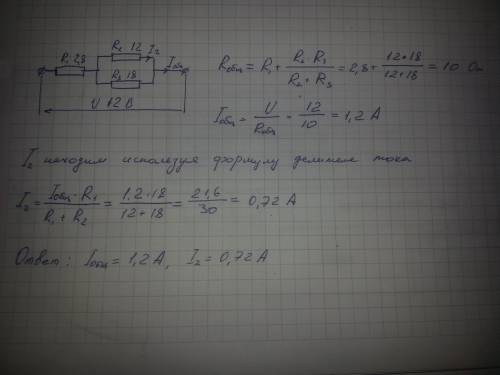 R₂ 12 I₂
R₁ 2,8 Iобщ
R₃ 18
U 12 В
Rобщ = R₁ + R₂ · R₃ / R₂ + R₃ = 2,8 + 12 · 18 / 12 + 18 = 10 Ом
Iобщ = U / Rобщ = 12 / 10 = 1,2 А
I₂ находим используя формулу деления тока
I₂ = Iобщ · R₁ / R₁ + R₂ = 1,2 · 18 / 12 + 18 = 21,6 / 30 = 0,72 А
Ответ: Iобщ = 1,2 А, I₂ = 0,72 А